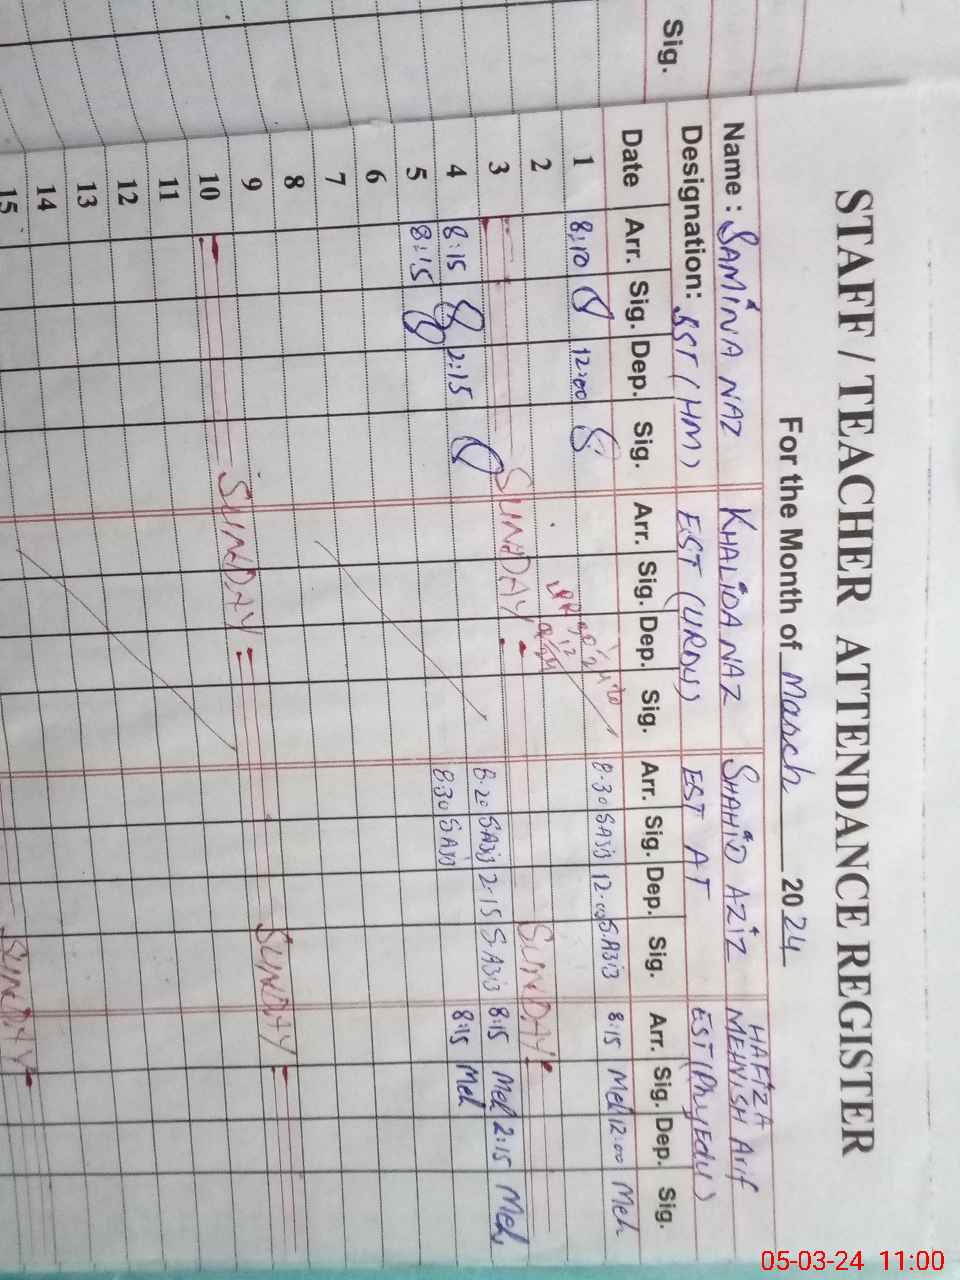 Sig.
STAFF / TEACHER ATTENDANCE REGISTER
For the Month of March 2024
Name : SAMINA NAZ KHALIDA NAZ SHAHID AZIZ HAFIZA MEHNISH Arif
Designation: SST (HM) EST (URDU) EST AT EST (Phy Edu)
Date Arr. Sig. Dep. Sig. Arr. Sig. Dep. Sig. Arr. Sig. Dep. Sig. Arr. Sig. Dep. Sig.
1 8:10 12:00 8:30 12:00 8:15 Meh 12:00 Meh
2
3 SUNDAY SUNDAY
4 8:15 2:15 8:20 2:15 8:15 Meh 2:15 Meh
5 8:15 8:30 8:15 Meh
6
7
8
9
10 SUNDAY SUNDAY
11
12
13
14
15
SUNDAY
05-03-24 11:00